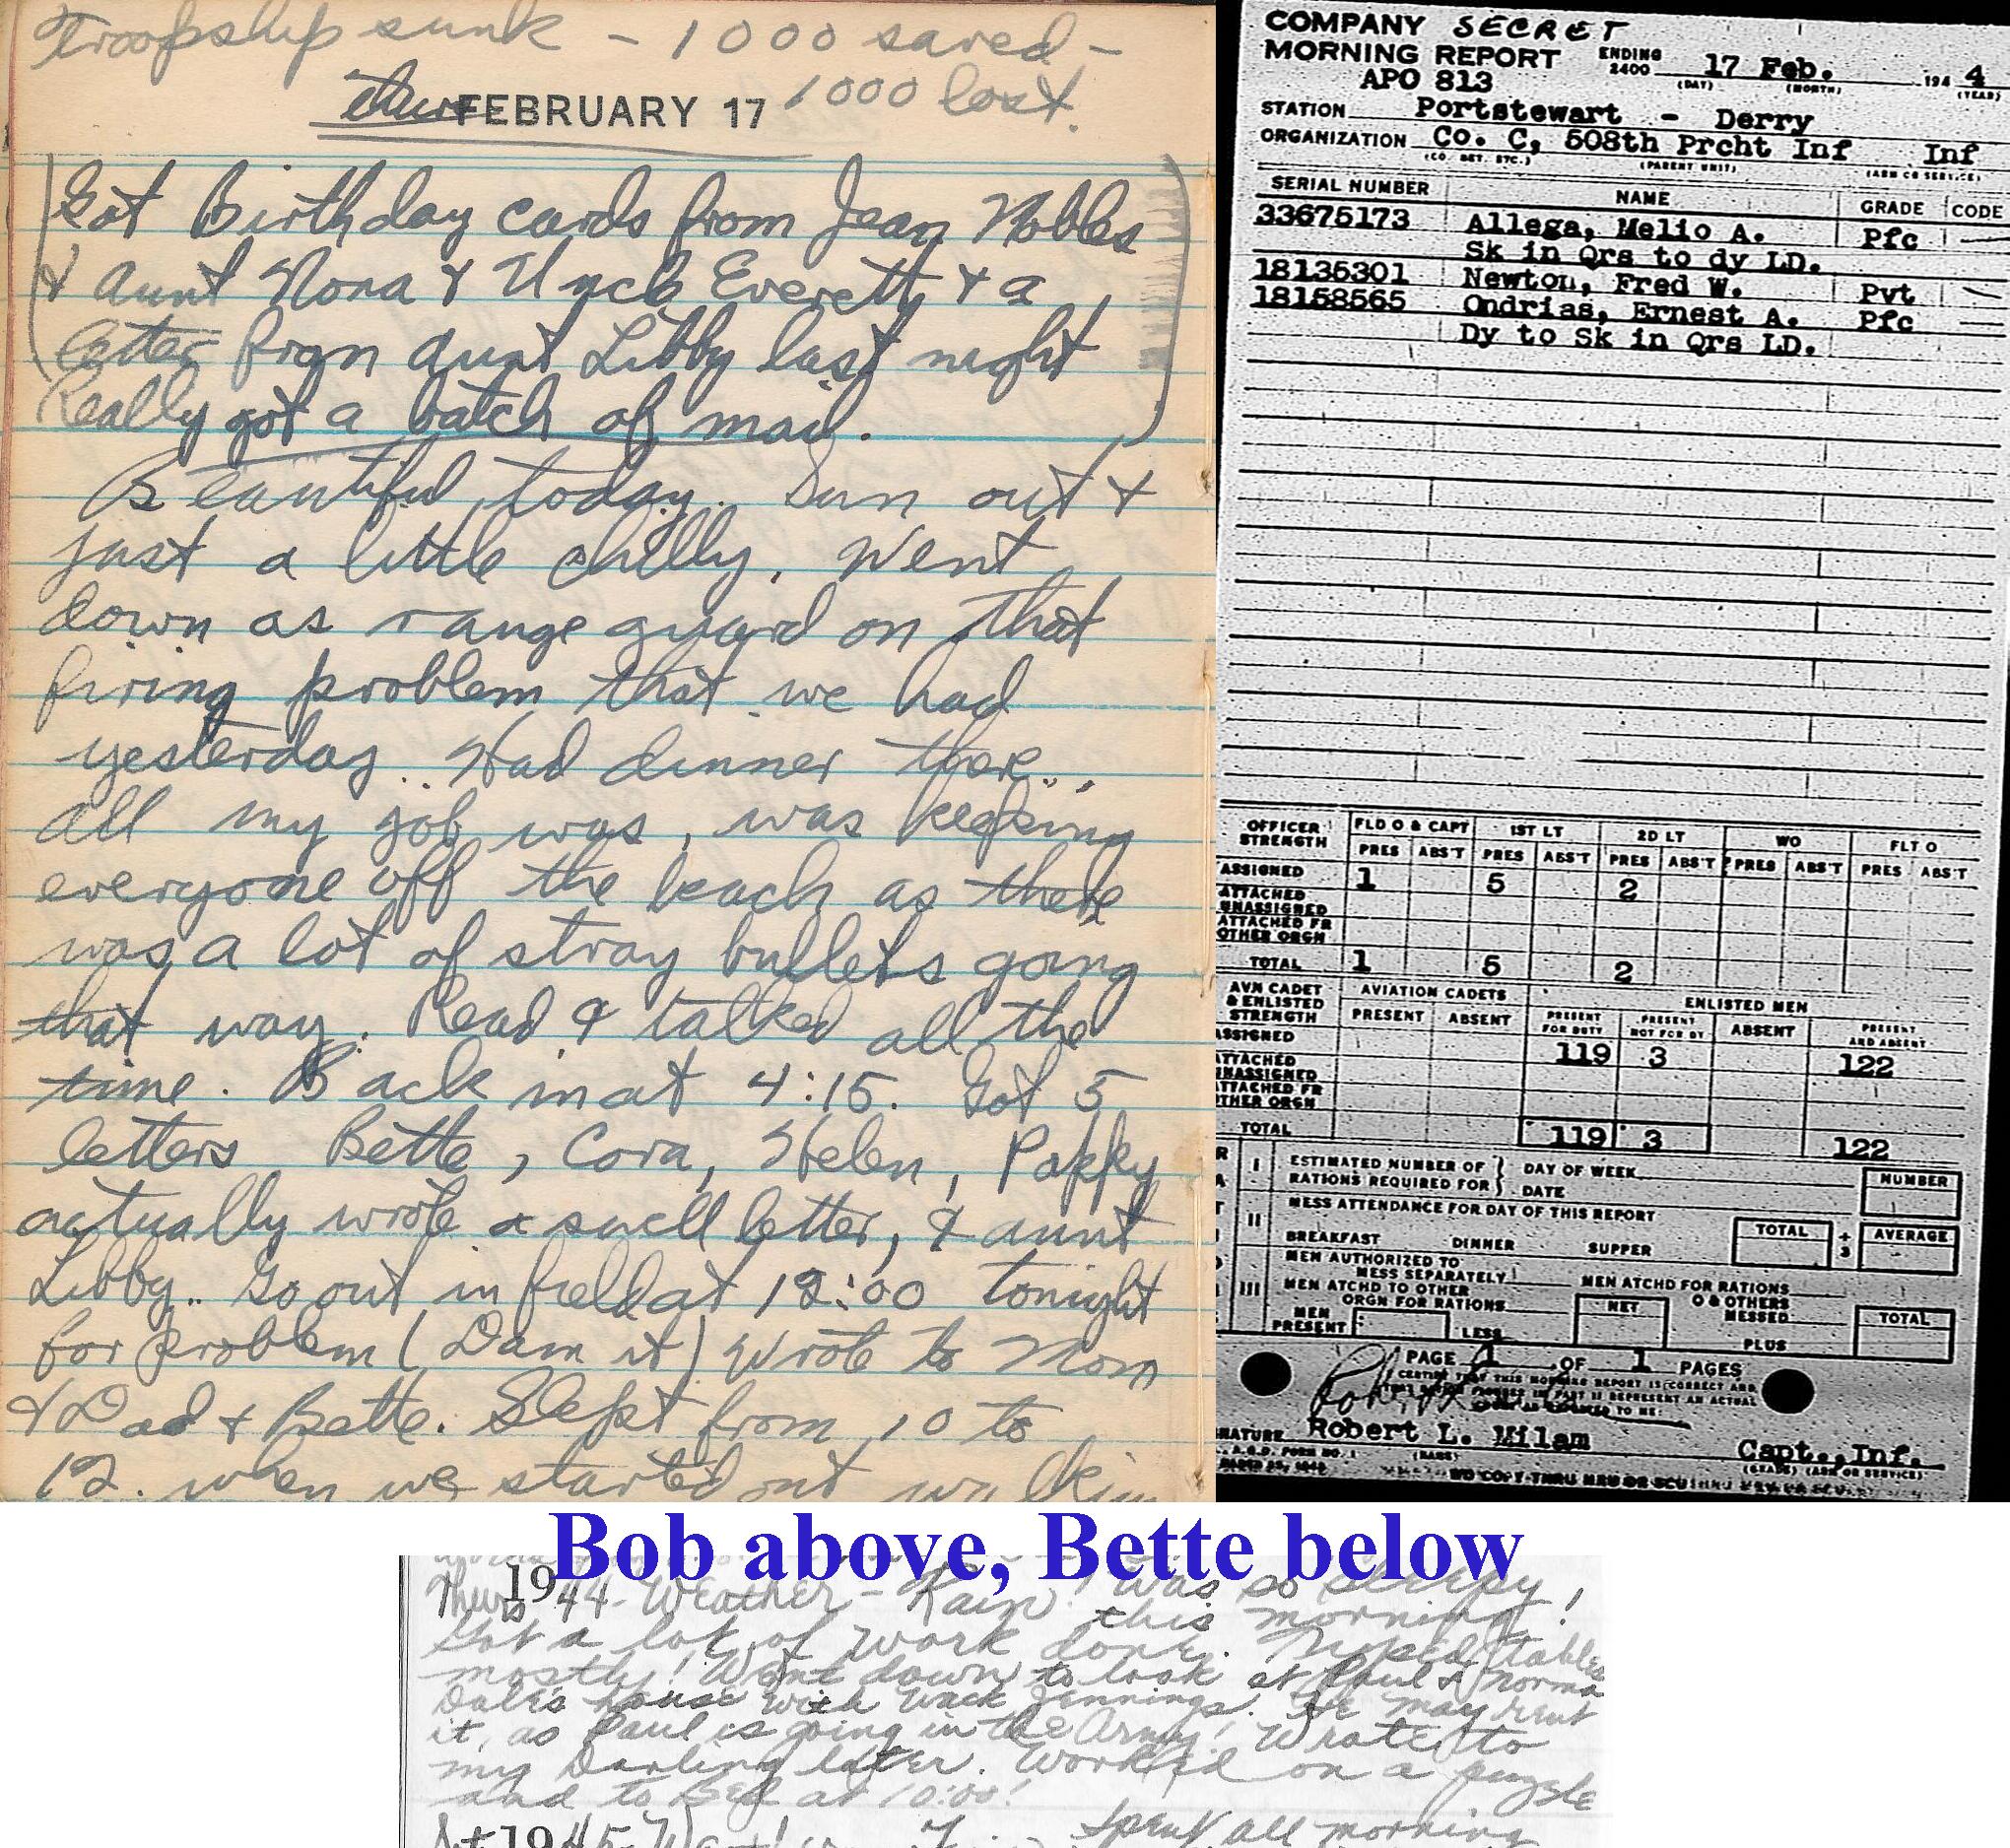 Troopship sunk - 1000 saved -
1000 lost.
thurs FEBRUARY 17
Got Birthday cards from Jean Nobles
& Aunt Nona & Unck Everett & a
letter from Aunt Libby last night
Really got a batch of mail.
Beautiful today. Sun out &
just a little chilly. Went
down as range guard on that
firing problem that we had
yesterday. Had dinner there..
all my job was, was keeping
everyone off the beach as there
was a lot of stray bullets going
that way. Read & talked all the
time. Back in at 4:15. Got 5
letters Bette, Cora, Helen, Pappy
actually wrote a swell letter, & aunt
Libby.. Go out in field at 12:00 tonight
for problem (Dam it) Wrote to Mom
& Dad & Bette. Slept from 10 to
12. when we started out
COMPANY SECRET
MORNING REPORT ENDING 2400 17 Feb. 194 4
(DAY) (MONTH) (YEAR)
APO 813
STATION Portstewart - Derry
ORGANIZATION Co. C, 508th Prcht Inf Inf
(CO. DET. ETC.) (PARENT UNIT) (ARM OR SERVICE)
SERIAL NUMBER NAME GRADE CODE
33675173 Allega, Melio A. Pfc
Sk in Qrs to dy LD.
18136301 Newton, Fred W. Pvt
18158565 Ondrias, Ernest A. Pfc
Dy to Sk in Qrs LD.
OFFICER STRENGTH FLD O & CAPT 1ST LT 2D LT WO FLT O
PRES ABS'T PRES ABS'T PRES ABS'T PRES ABS'T PRES ABS'T
ASSIGNED 1 5 2
ATTACHED UNASSIGNED
ATTACHED FR OTHER ORGN
TOTAL 1 5 2
AVN CADET & ENLISTED STRENGTH AVIATION CADETS ENLISTED MEN
PRESENT ABSENT PRESENT FOR DUTY PRESENT NOT FOR DY ABSENT PRESENT AND ABSENT
ASSIGNED 119 3 122
ATTACHED UNASSIGNED
ATTACHED FR OTHER ORGN
TOTAL 119 3 122
I ESTIMATED NUMBER OF RATIONS REQUIRED FOR } DAY OF WEEK DATE NUMBER
II MESS ATTENDANCE FOR DAY OF THIS REPORT
BREAKFAST DINNER SUPPER TOTAL ÷ 3 AVERAGE
III MEN AUTHORIZED TO MESS SEPARATELY MEN ATCHD FOR RATIONS
MEN ATCHD TO OTHER ORGN FOR RATIONS O & OTHERS MESSED
MEN PRESENT LESS NET PLUS TOTAL
PAGE 1 OF 1 PAGES
CERTIFY THAT THIS MORNING REPORT IS CORRECT AND
SIGNATURE Robert L. Milam Capt., Inf.
(NAME) (GRADE) (ARM OR SERVICE)
Bob above, Bette below
Thurs 1944 - Weather - Rain! Was so sleepy
this morning!
Got a lot of work done. Typed tables
mostly! Went down to look at Paul & Norma
Dale's house with Unck Jennings. He may rent
it, as Paul is going in the Army! Wrote to
my Darling later. Worked on a puzzle
and to Bed at 10:00!
1945 Spent all morning